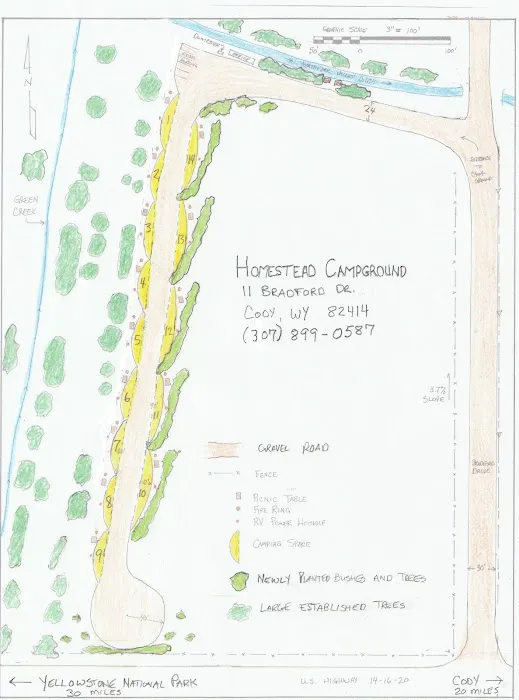 GRAPHIC SCALE 3" = 100'
50' 0 100'
N
24
ENTRANCE
TO
CAMP-
GROUND
GREEN
CREEK
1
14
2
3
13
4
5
12
6
11
7
10
8
9
HOMESTEAD CAMPGROUND
11 BRADFORD DR.
CODY, WY 82414
(307) 899-0587
3.7%
SLOPE
GRAVEL ROAD
FENCE
PICNIC TABLE
FIRE RING
RV POWER HOOKUP
CAMPING SPACE
NEWLY PLANTED BUSHES AND TREES
LARGE ESTABLISHED TREES
BRADFORD
DRIVE
30'
← YELLOWSTONE NATIONAL PARK
30 MILES
U.S. HIGHWAY 14-16-20
CODY →
20 MILES